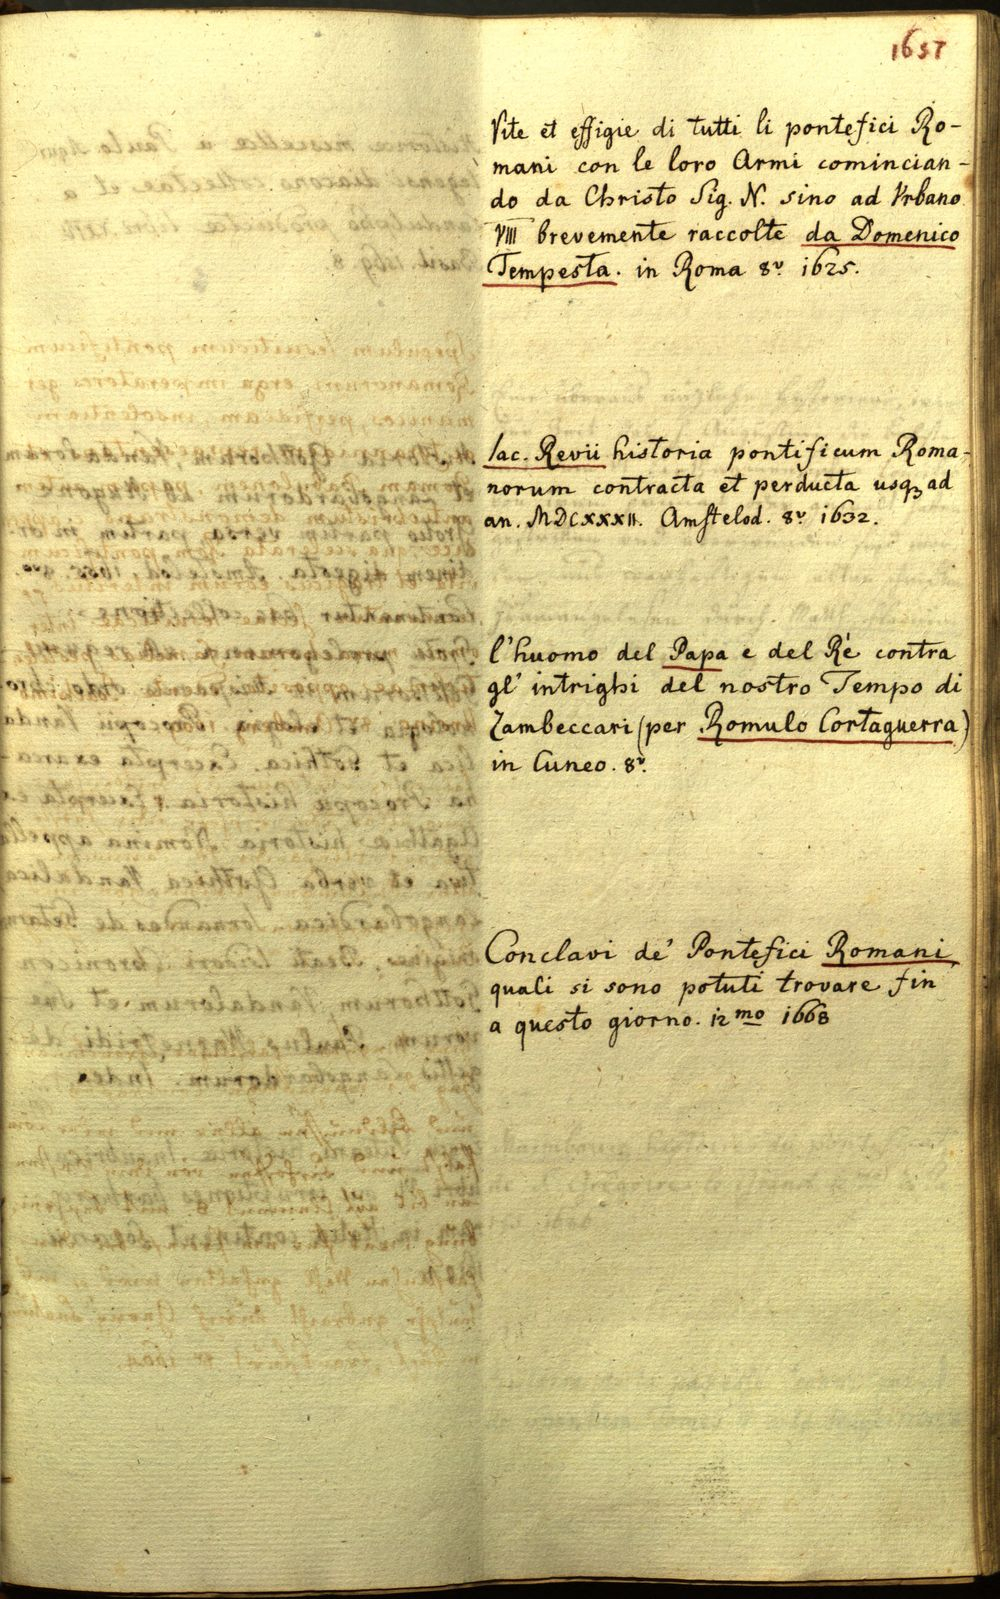 1657
Vite et effigie di tutti li pontefici Ro-
mani con le loro Armi comincian-
do da Christo Sig. N. sino ad Vrbano
VIII brevemente raccolte da Domenico
Tempesta. in Roma 8º 1625.
Iac. Revii historia pontificum Roma-
norum contracta et perducta usq; ad
an. MDCXXXII. Amstelod. 8º 1632.
l'huomo del Papa e del Rè contra
gl' intrighi del nostro Tempo di
Zambeccari (per Romulo Cortaguerra)
in Cuneo. 8º.
Conclavi de' Pontefici Romani
quali si sono potuti trovare fin
a questo giorno. 12mo 1668